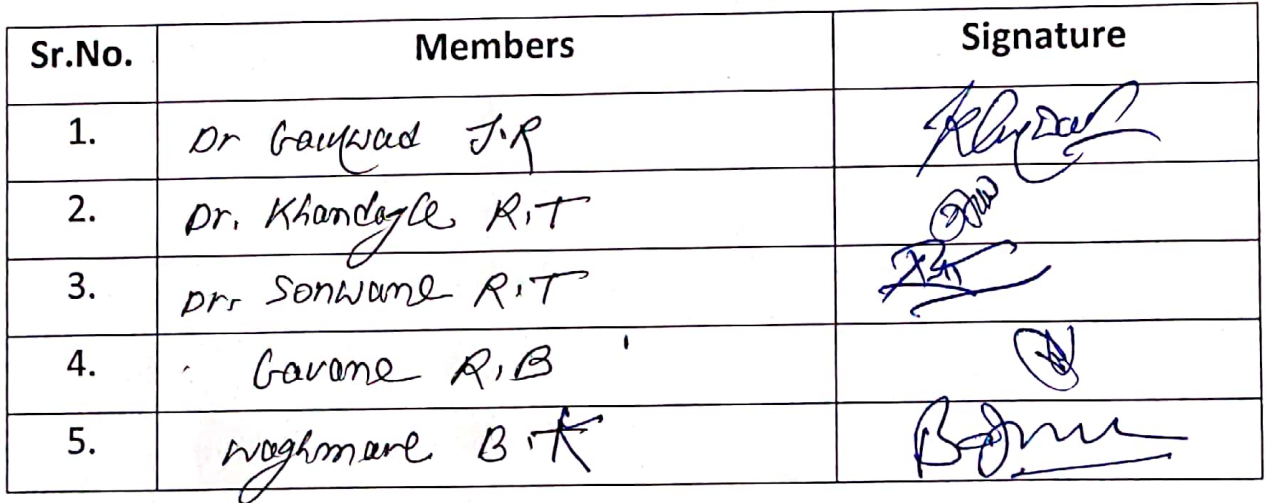 Sr.No. Members Signature
1. Dr Gaikwad J.R
2. Dr. Khandagle R.T
3. Dr. Sonwane R.T
4. Gavane R.B
5. Waghmare B.K